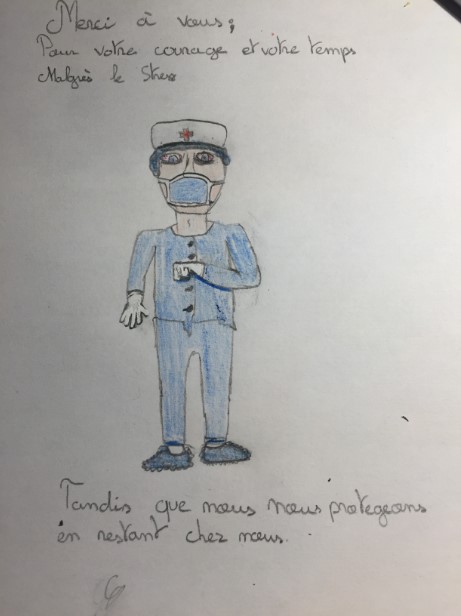 Merci à vous;
Pour votre courage et votre temps
Malgrès le Stress
Tandis que nous nous protegeons
en restant chez nous.